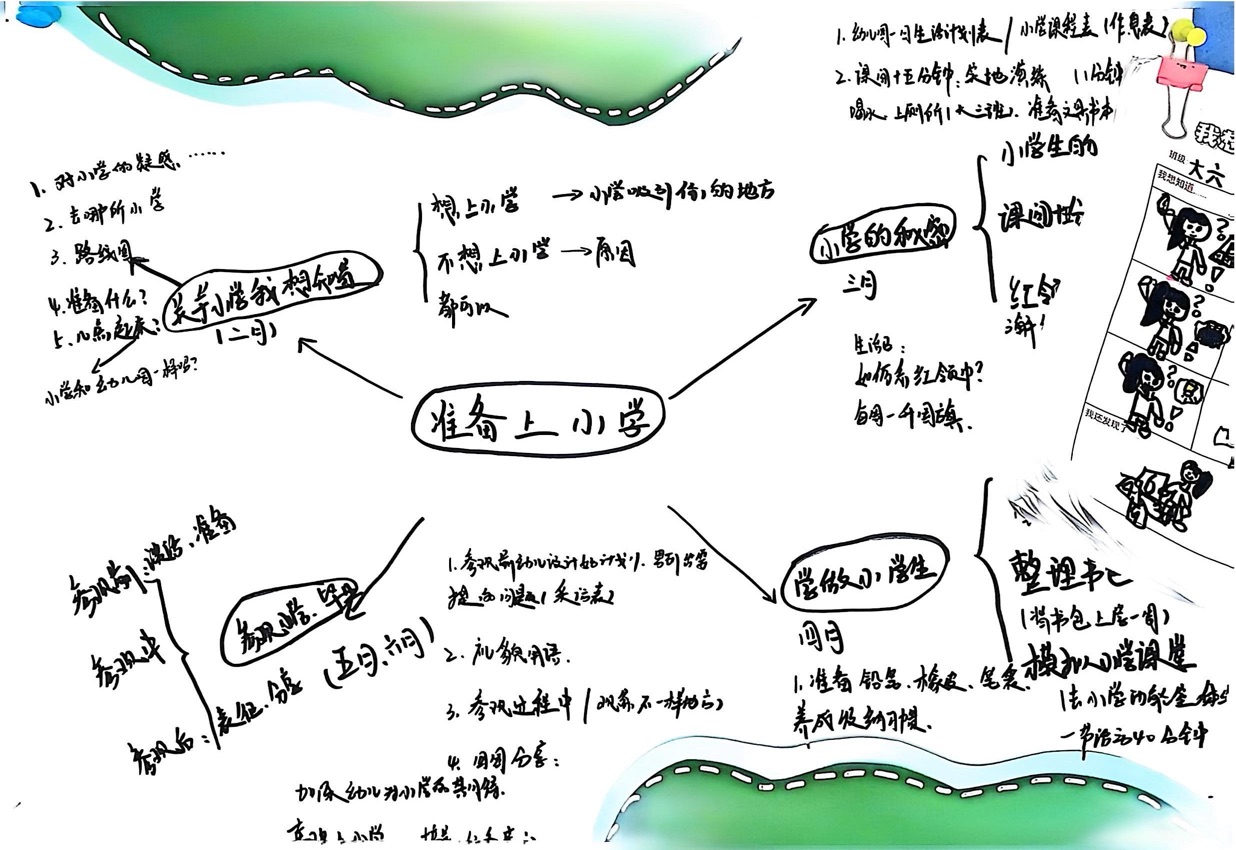 准备上小学
关于小学我想知道
(二月)
1. 对小学的疑惑......
2. 去哪所小学
3. 路线图
4. 准备什么?
5. 几点起床?
小学和幼儿园一样吗?
想上小学 → 小学吸引你的地方
不想上小学 → 原因
都可以
小学的秘密
三月
1. 幼儿园一日生活计划表 / 小学课程表 (作息表)
2. 课间十五分钟: 实地演练 11分钟
喝水、上厕所 (大三班)、准备文具书本
小学生的
课间
红领
如何系红领巾?
每周一升国旗.
大六
班级
我想知道......
我还发现了
学做小学生
四月
整理书包
(背书包上学一周)
模拟小学课堂
一节活动40分钟
1. 准备铅笔、橡皮、笔袋.
养成 习惯.
参观小学、毕
(五月、六月)
参观前: 谈话、准备
参观中
参观后: 表征、分享
1. 参观前幼儿设计好计划,
提的问题 (采访表)
2. 礼貌用语.
3. 参观过程中 (观察不一样地方)
4. 回园分享:
幼儿对小学
上小学